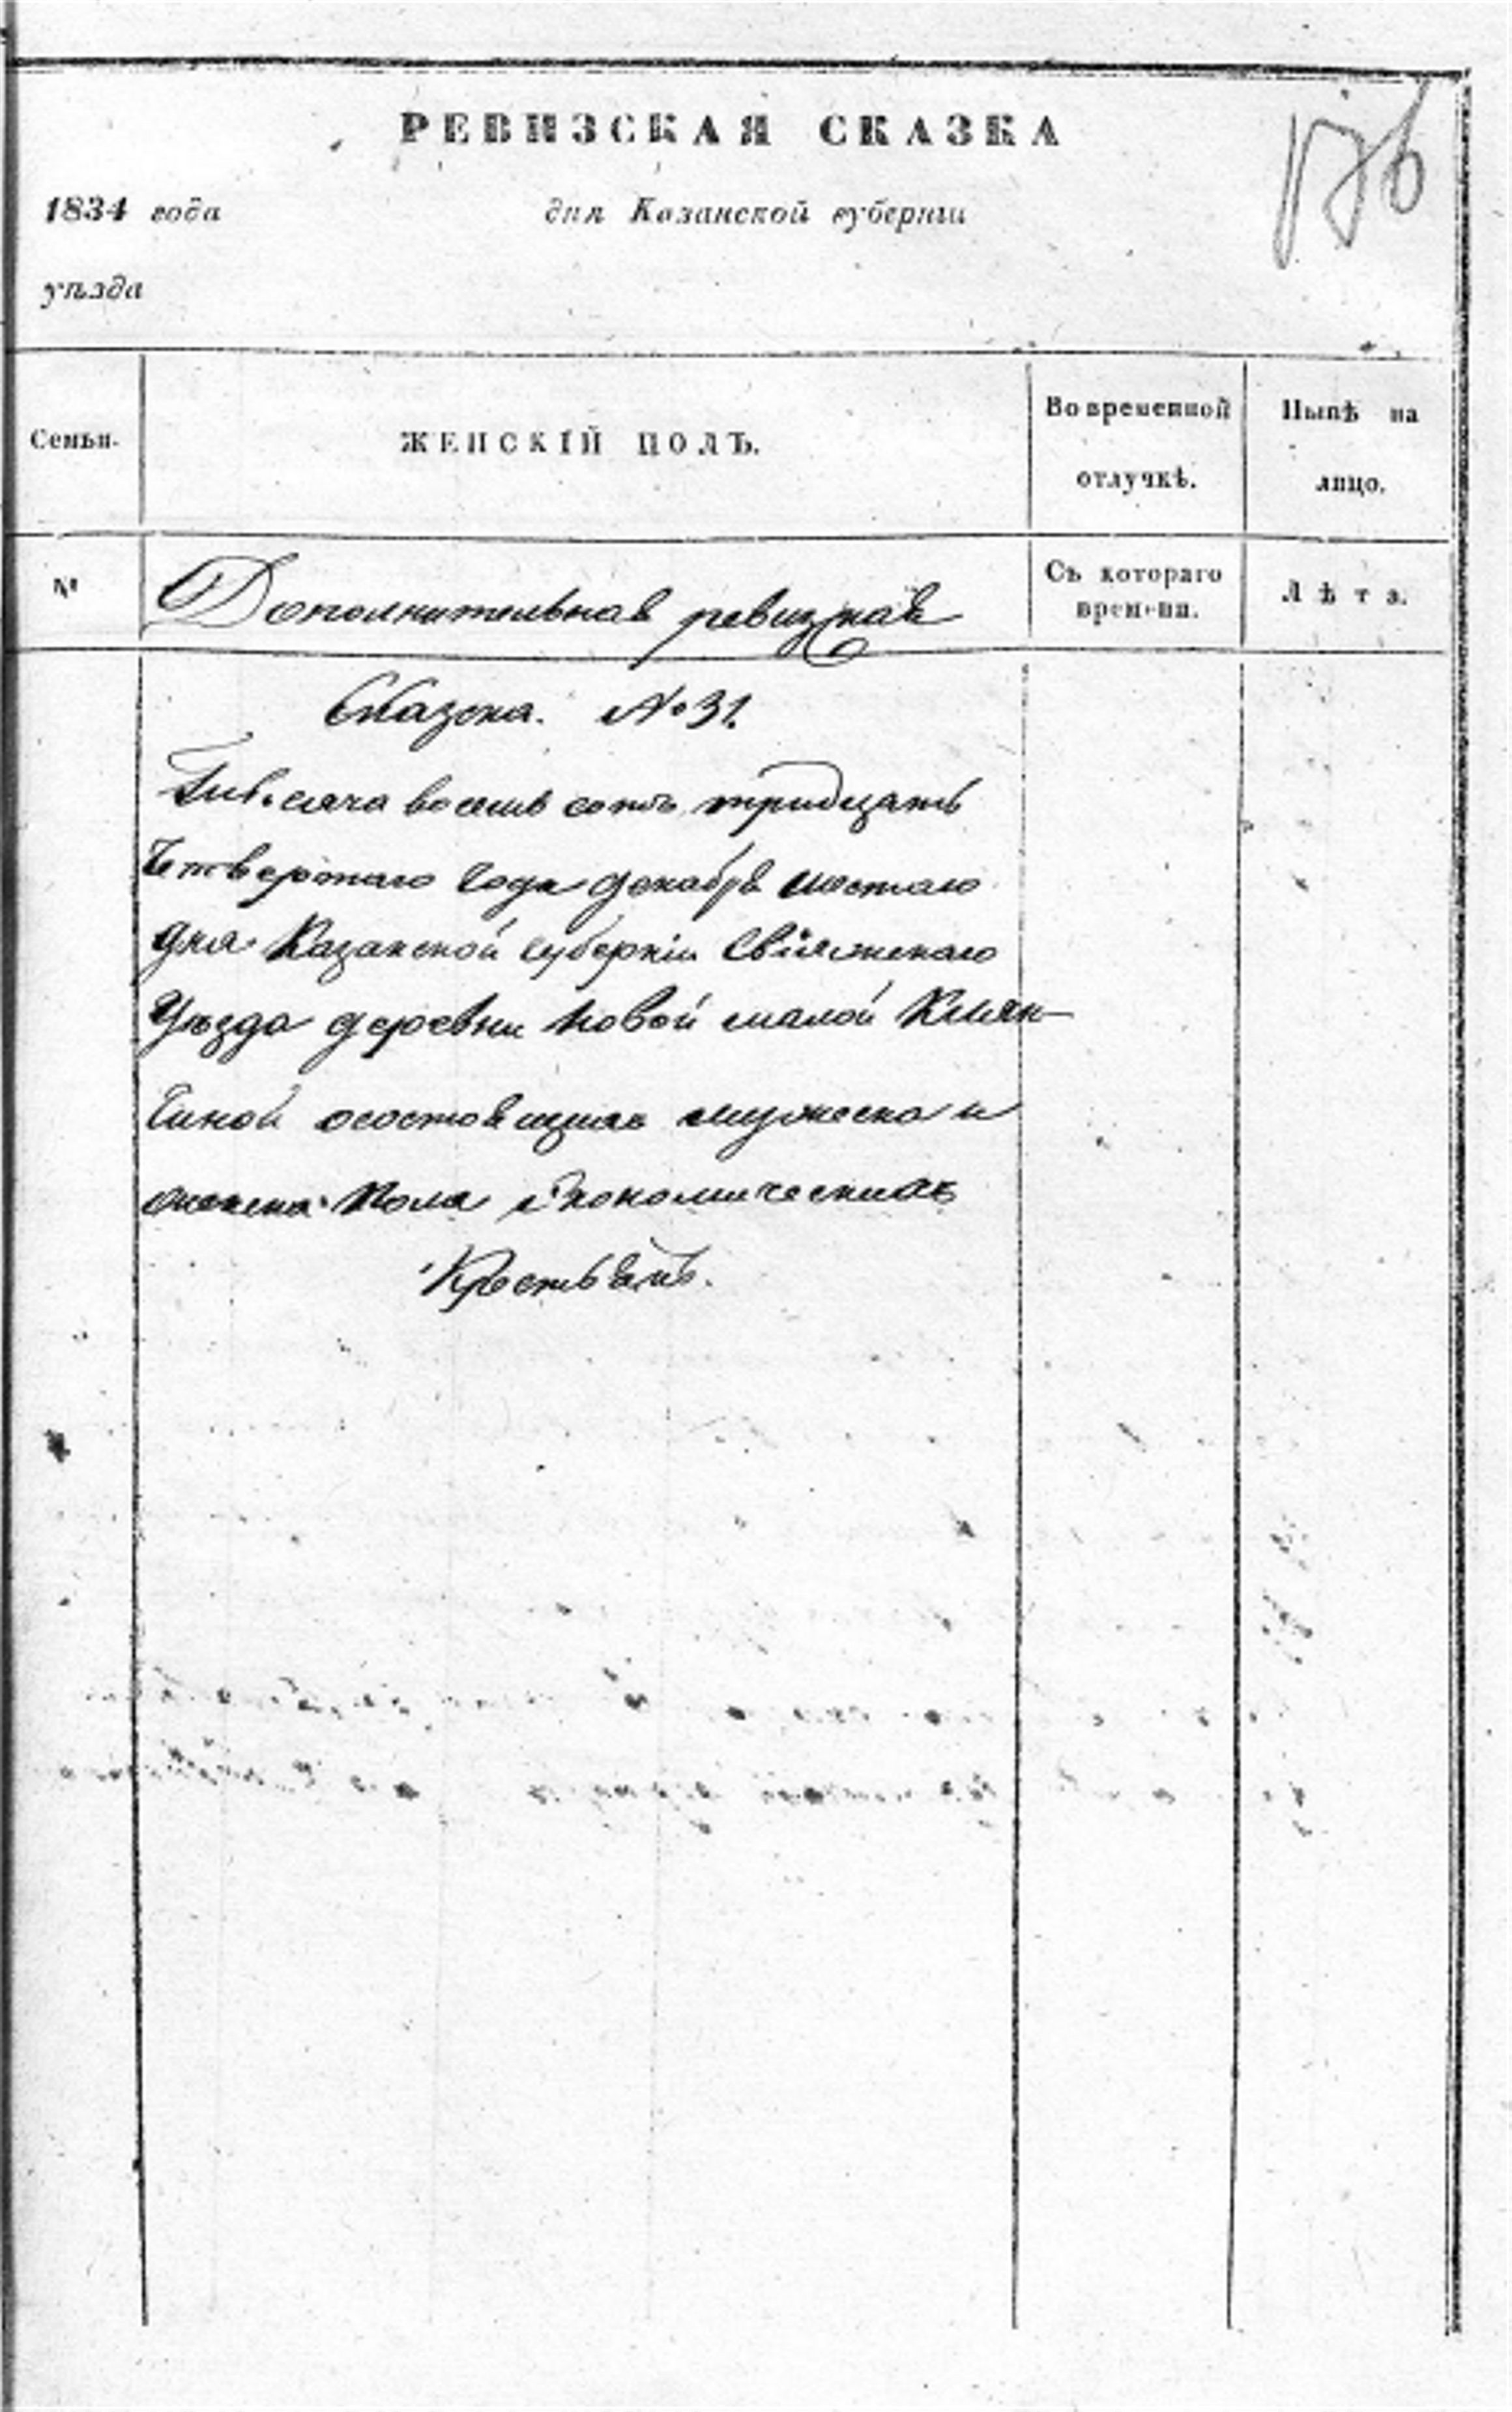 РЕВИЗСКАЯ СКАЗКА
176
1834 года дня Казанской губернiи
уѣзда
Семьи.
ЖЕНСКIЙ ПОЛЪ.
Во временной
отлучкѣ.
Нынѣ на
лицо.
№
Дополнительная ревизкая
Съ котораго
времени.
Лѣта.
Сказка. № 31.
Тысяча восемь сотъ тридцать
Четвертаго Года декабря шестаго
дня Казанской губернiи Свiяжскаго
Уѣзда деревни Новой малой Клян
Чиной осостоящихъ мужеска и
женска Пола Экономическихъ
Крестьянъ.